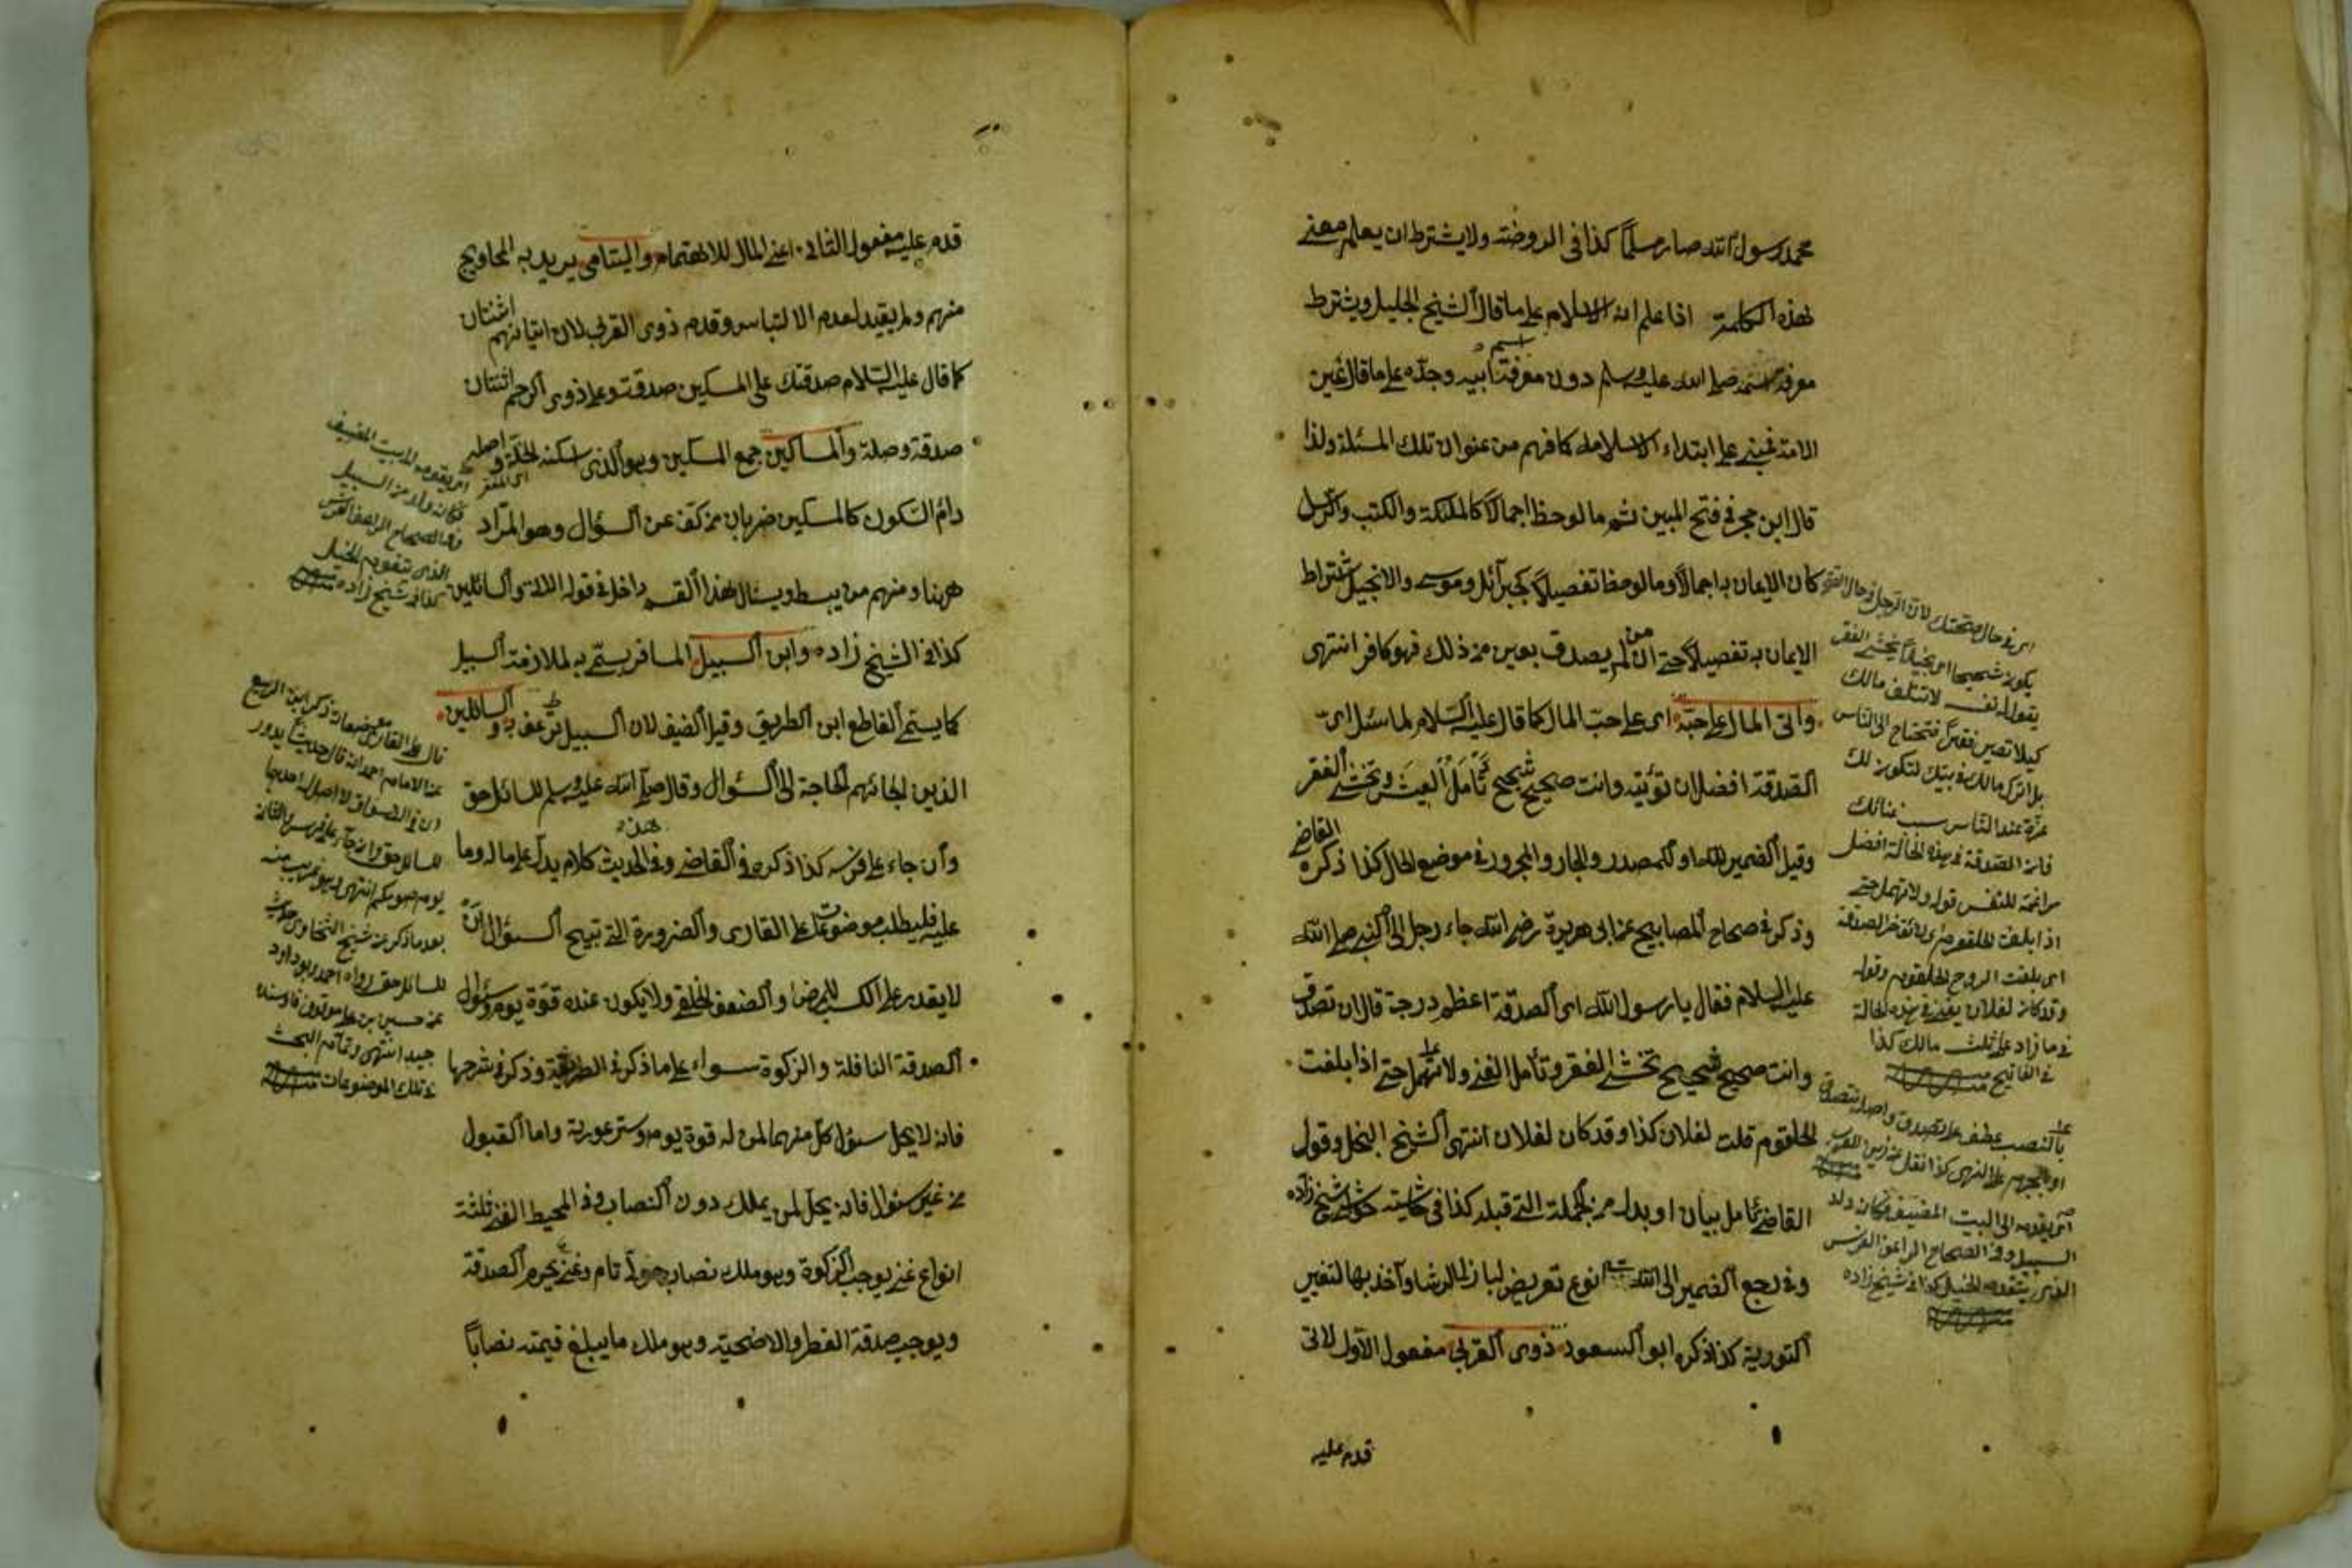 محمد رسول الله صار مسلماً كذا فى الروضة ولا يشترط ان يعلم معنى
هذه الكلمة اذا علم انه الاسلام على ما قال الشيخ الجليل ويشترط
معرفة اسمه صلى الله عليه وسلم دون معرفة اسم ابيه وجدّه على ما قال
على ابتداء الاسلام كما فهم من عنوان تلك المسئلة ولذا
قال ابن حجر فى فتح المبين ثم ما لوحظ اجمالاً كالملئكة والكتب والرسل
كان الايمان به اجمالاً وما لوحظ تفصيلاً كجبرآئل وموسى والانجيل اشتراط
الايمان به تفصيلاً حتى ان من لم يصدق بمعين من ذلك فهو كافر انتهى
واتى المال على حبّه اى على حبّ المال كما قال عليه السّلام لما سئل اىّ
الصدقة افضل ان تؤتيه وانت صحيح شحيح تأمل العيش وتخشى الفقر
وقيل الضمير لله او للمصدر والجار والمجرور فى موضع الحال كذا ذكره القاضى
وذكر فى صحاح المصابيح عن ابى هريرة رضى الله جاء رجل الى النبى صلى الله
عليه السلام فقال يا رسول الله اى الصدقة اعظم درجة قال ان تصدق
وانت صحيح شحيح تخشى الفقر وتأمل الغنى ولا تمهل حتى اذا بلغت
الحلقوم قلت لفلان كذا وقد كان لفلان انتهى الشح البخل وقول
القاضى تأمل بيان او بدل من الجملة التى قبله كذا فى حاشية شيخ زاده
وفى رجع الضمير الى الله نوع تعريض لباذل الرشا وآخذ بها لتغيير
التورية كذا ذكره ابو السعود ذوى القربى مفعول الاول لاتى
قدم عليه
اى فى حال صحتك لان الرجل فى حال
يكون شحيحا اى بخيلاً يخشى الفقر
يقول له نفسه لا تتلف مالك
كيلا تصير فقيراً فتحتاج الى الناس
بل اترك مالك فى بيتك لتكون لك
عزة عند الناس بسبب غنائك
فان الصدقة فى هذه الحالة افضل
مراغمة للنفس قوله ولا تمهل حتى
اذا بلغت الحلقوم اى لا تؤخر الصدقة
اى بلغت الروح الحلقوم وقوله
وقد كان لفلان يعنى فى هذه الحالة
فى ما زاد على ثلث مالك كذا
بالنصب عطف على تصدق
السبيل وفى الصحاح الراعف الفرس
الذى يتقدم الخيل كذا فى شيخ زاده
قدم عليه مفعول الثانى اعنى المال للاهتمام واليتامى يريد به المحاويج
منهم ولم يقيد لعدم الالتباس وقدم ذوى القربى لان ايتائهم اثنتان
كما قال عليه السّلام صدقتك على المسكين صدقة وعلى ذوى الرحم اثنتان
صدقة وصلة والمساكين جمع المسكين وهو الذى اسكنه الخلّة واصله
دائم السّكون كالمسكين ضربان من كفّ عن السؤال وهو المراد
ههنا ومنهم من يبسط ويسئال هذا القسم داخل فى قوله والسائلين
كذا فى الشيخ زاده وابن السبيل المسافر يسمّى به لملازمته السبيل
كما يسمى القاطع ابن الطريق وقيل الضيف لان السبيل ترعف به والسائلين
الذين الجائهم الحاجة الى السؤال وقال صلى الله عليه وسلم للسائل حق
وان جاء على فرسه كذا ذكره فى القاضى وفى هذا الحديث كلام يدل على ما له وما
عليه فليطلب موضوعات على القارى والضرورة التى تبيح السؤال ان
لا يقدر على الكسب للمرض او الضعف الخلقى ولا يكون عنده قوّة يوم وسؤل
الصدقة النافلة والزكوة سواء على ما ذكر فى الطريقة وذكر فى شرحها
فانه لا يحل سئول كلّ منهما لمن له قوة يوم وستر عورته واما القبول
من غير سئول فانه يحل لمن يملك دون النصاب وفى المحيط الغنى ثلثة
انواع غنى يوجب الزكوة وهو ملك نصاب حولىّ تام وغنى يحرم الصدقة
ويوجب صدقة الفطر والاضحية وهو ملك ما يبلغ قيمته نصاباً
فكانه ولد من السبيل
وفى الصحاح الراعف الفرس
الذى يتقدم الخيل
كذا فى شيخ زاده
عن الامام احمد انه قال حديثا يدور
فى الاسواق لا اصل له احدها
للسائل حق وان جاء على فرس والثانى
يوم صومكم انتهى
بعد ما ذكر
للسائل حق رواه احمد وابو داود
عن حسين بن على
جيد انتهى وتمام البحث
فى تلك الموضوعات